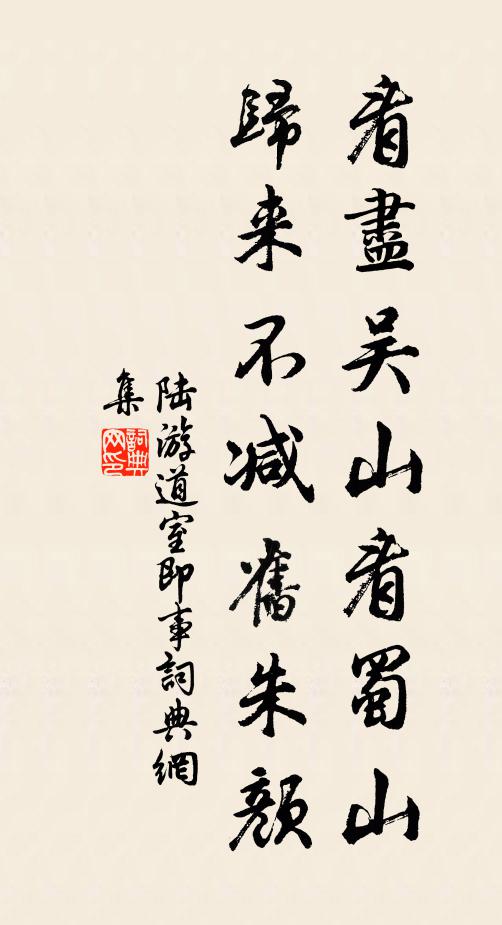 看盡吴山看蜀山
歸来不减舊朱顔
陆游道室即事詞典網
集
詞典网印